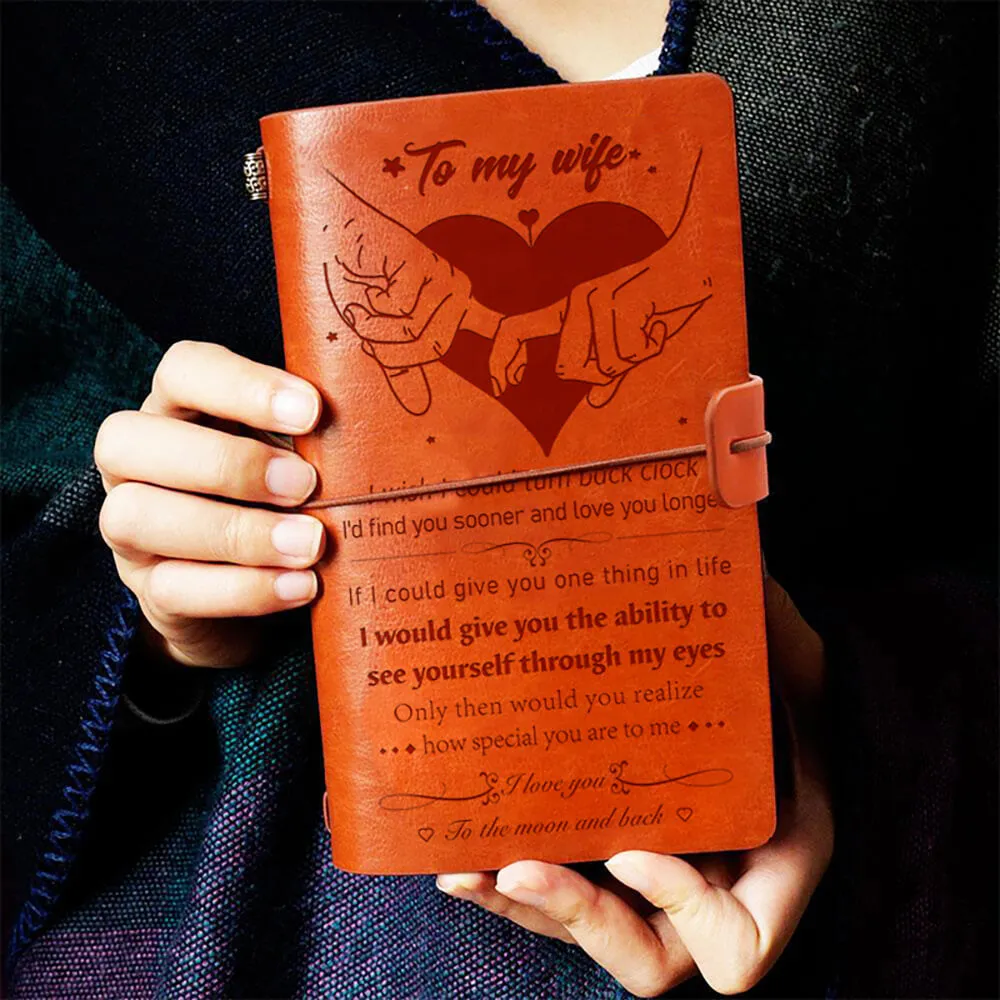 To my wife
I wish I could turn back clock
I'd find you sooner and love you longe
If I could give you one thing in life
I would give you the ability to
see yourself through my eyes
Only then would you realize
how special you are to me
I love you
To the moon and back